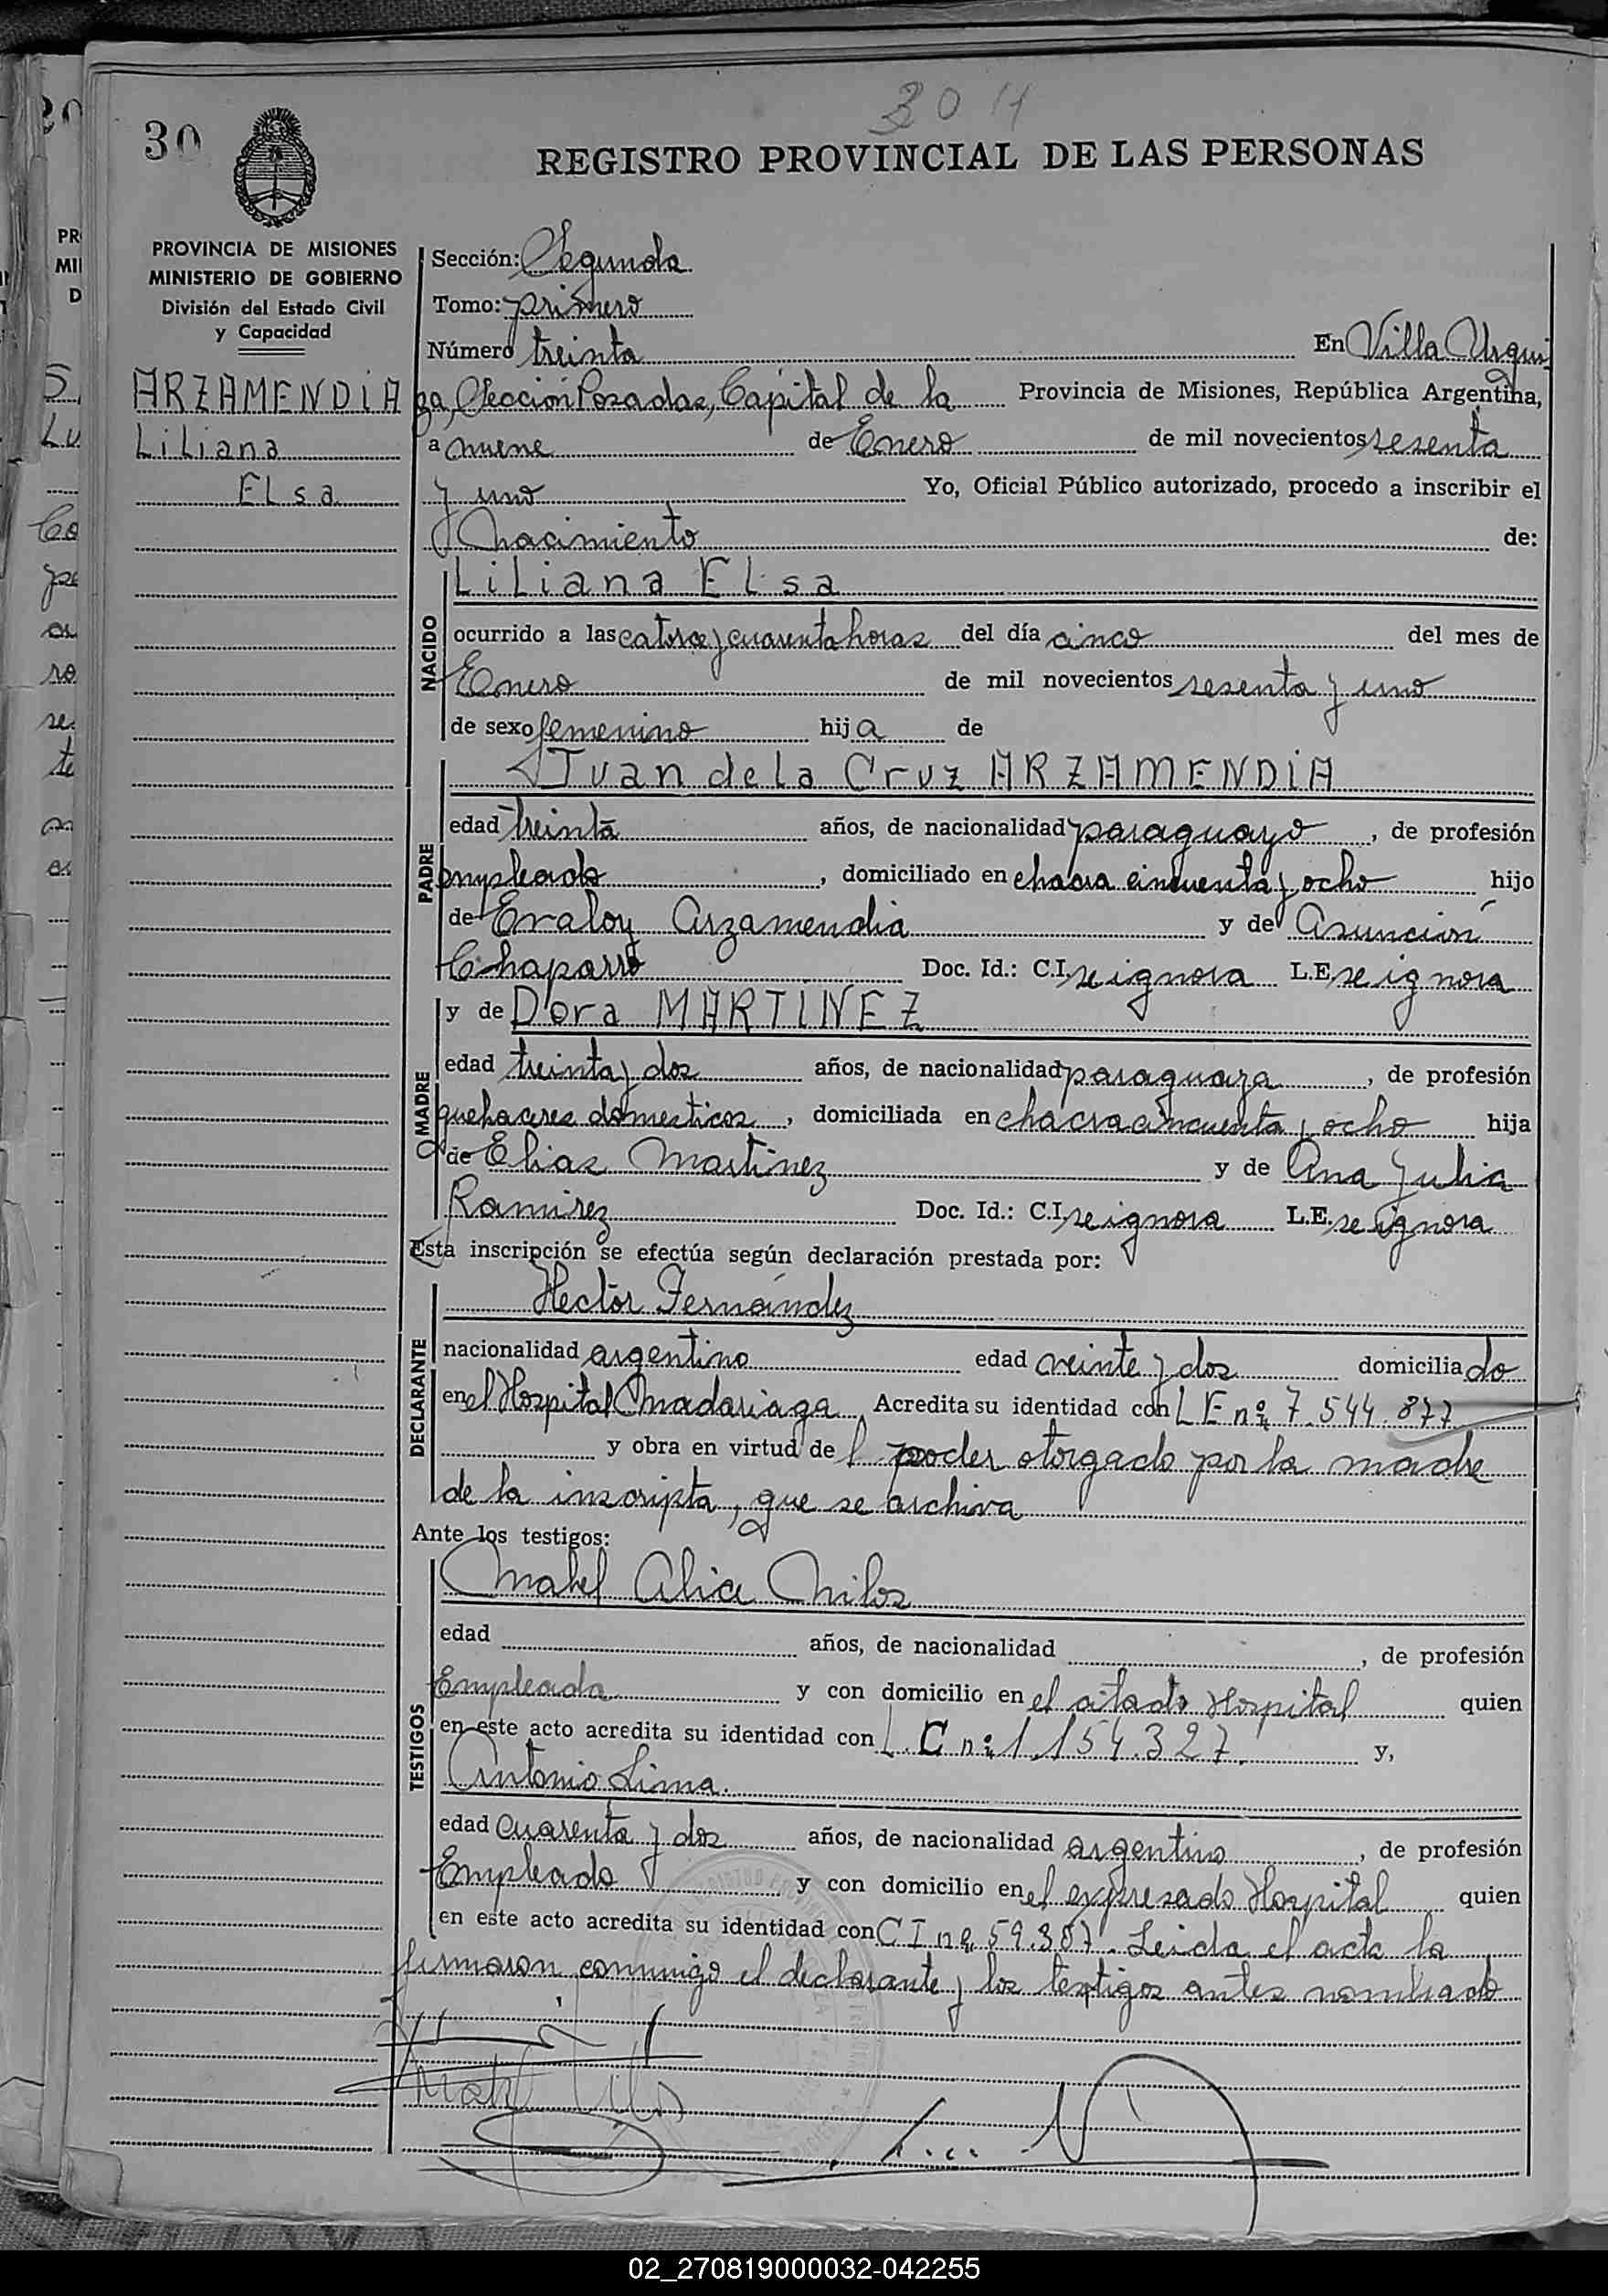 30
REGISTRO PROVINCIAL DE LAS PERSONAS
PROVINCIA DE MISIONES
MINISTERIO DE GOBIERNO
División del Estado Civil
y Capacidad
ARZAMENDIA
Liliana
Elsa
Sección: Segunda
Tomo: primero
Número treinta En Villa Urqui
za, Sección Posadas, Capital de la Provincia de Misiones, República Argentina,
a nueve de Enero de mil novecientos sesenta
y uno Yo, Oficial Público autorizado, procedo a inscribir el
Nacimiento de:
NACIDO
Liliana Elsa
ocurrido a las catorce y cuarenta horas del día cinco del mes de
Enero de mil novecientos sesenta y uno
de sexo femenino hija de
PADRE
Juan de la Cruz ARZAMENDIA
edad treinta años, de nacionalidad paraguayo, de profesión
empleado, domiciliado en chacra cincuenta y ocho hijo
de Eraloy Arzamendia y de Asunción
Chaparro Doc. Id.: C.I. se ignora L.E. se ignora
MADRE
y de Dora MARTINEZ
edad treinta y dos años, de nacionalidad paraguaya, de profesión
quehaceres domesticos, domiciliada en chacra cincuenta y ocho hija
de Elias Martinez y de Ana Julia
Ramirez Doc. Id.: C.I. se ignora L.E. se ignora
Esta inscripción se efectúa según declaración prestada por:
DECLARANTE
Hector Fernández
nacionalidad argentino edad veinte y dos domiciliado
en el Hospital Madariaga. Acredita su identidad con L E nº 7.544.877
y obra en virtud del poder otorgado por la madre
de la inscripta, que se archiva
Ante los testigos:
TESTIGOS
Mabel Alice Milos
edad años, de nacionalidad , de profesión
Empleada y con domicilio en el citado Hospital quien
en este acto acredita su identidad con L.C nº 1.154.327. y,
Antonio Lima.
edad cuarenta y dos años, de nacionalidad argentino, de profesión
Empleado y con domicilio en el expresado Hospital quien
en este acto acredita su identidad con C I nº 59.307. Leida el acta la
firmaron conmigo el declarante y los testigos antes nombrado
02_270819000032-042255